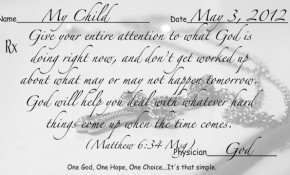 Name My Child Date May 3, 2012
Rx Give your entire attention to what God is
doing right now, and don't get worked up
about what may or may not happen tomorrow.
God will help you deal with whatever hard
things come up when the time comes.
(Matthew 6:34 Msg)
Physician God
One God, One Hope, One Choice...It's that simple.